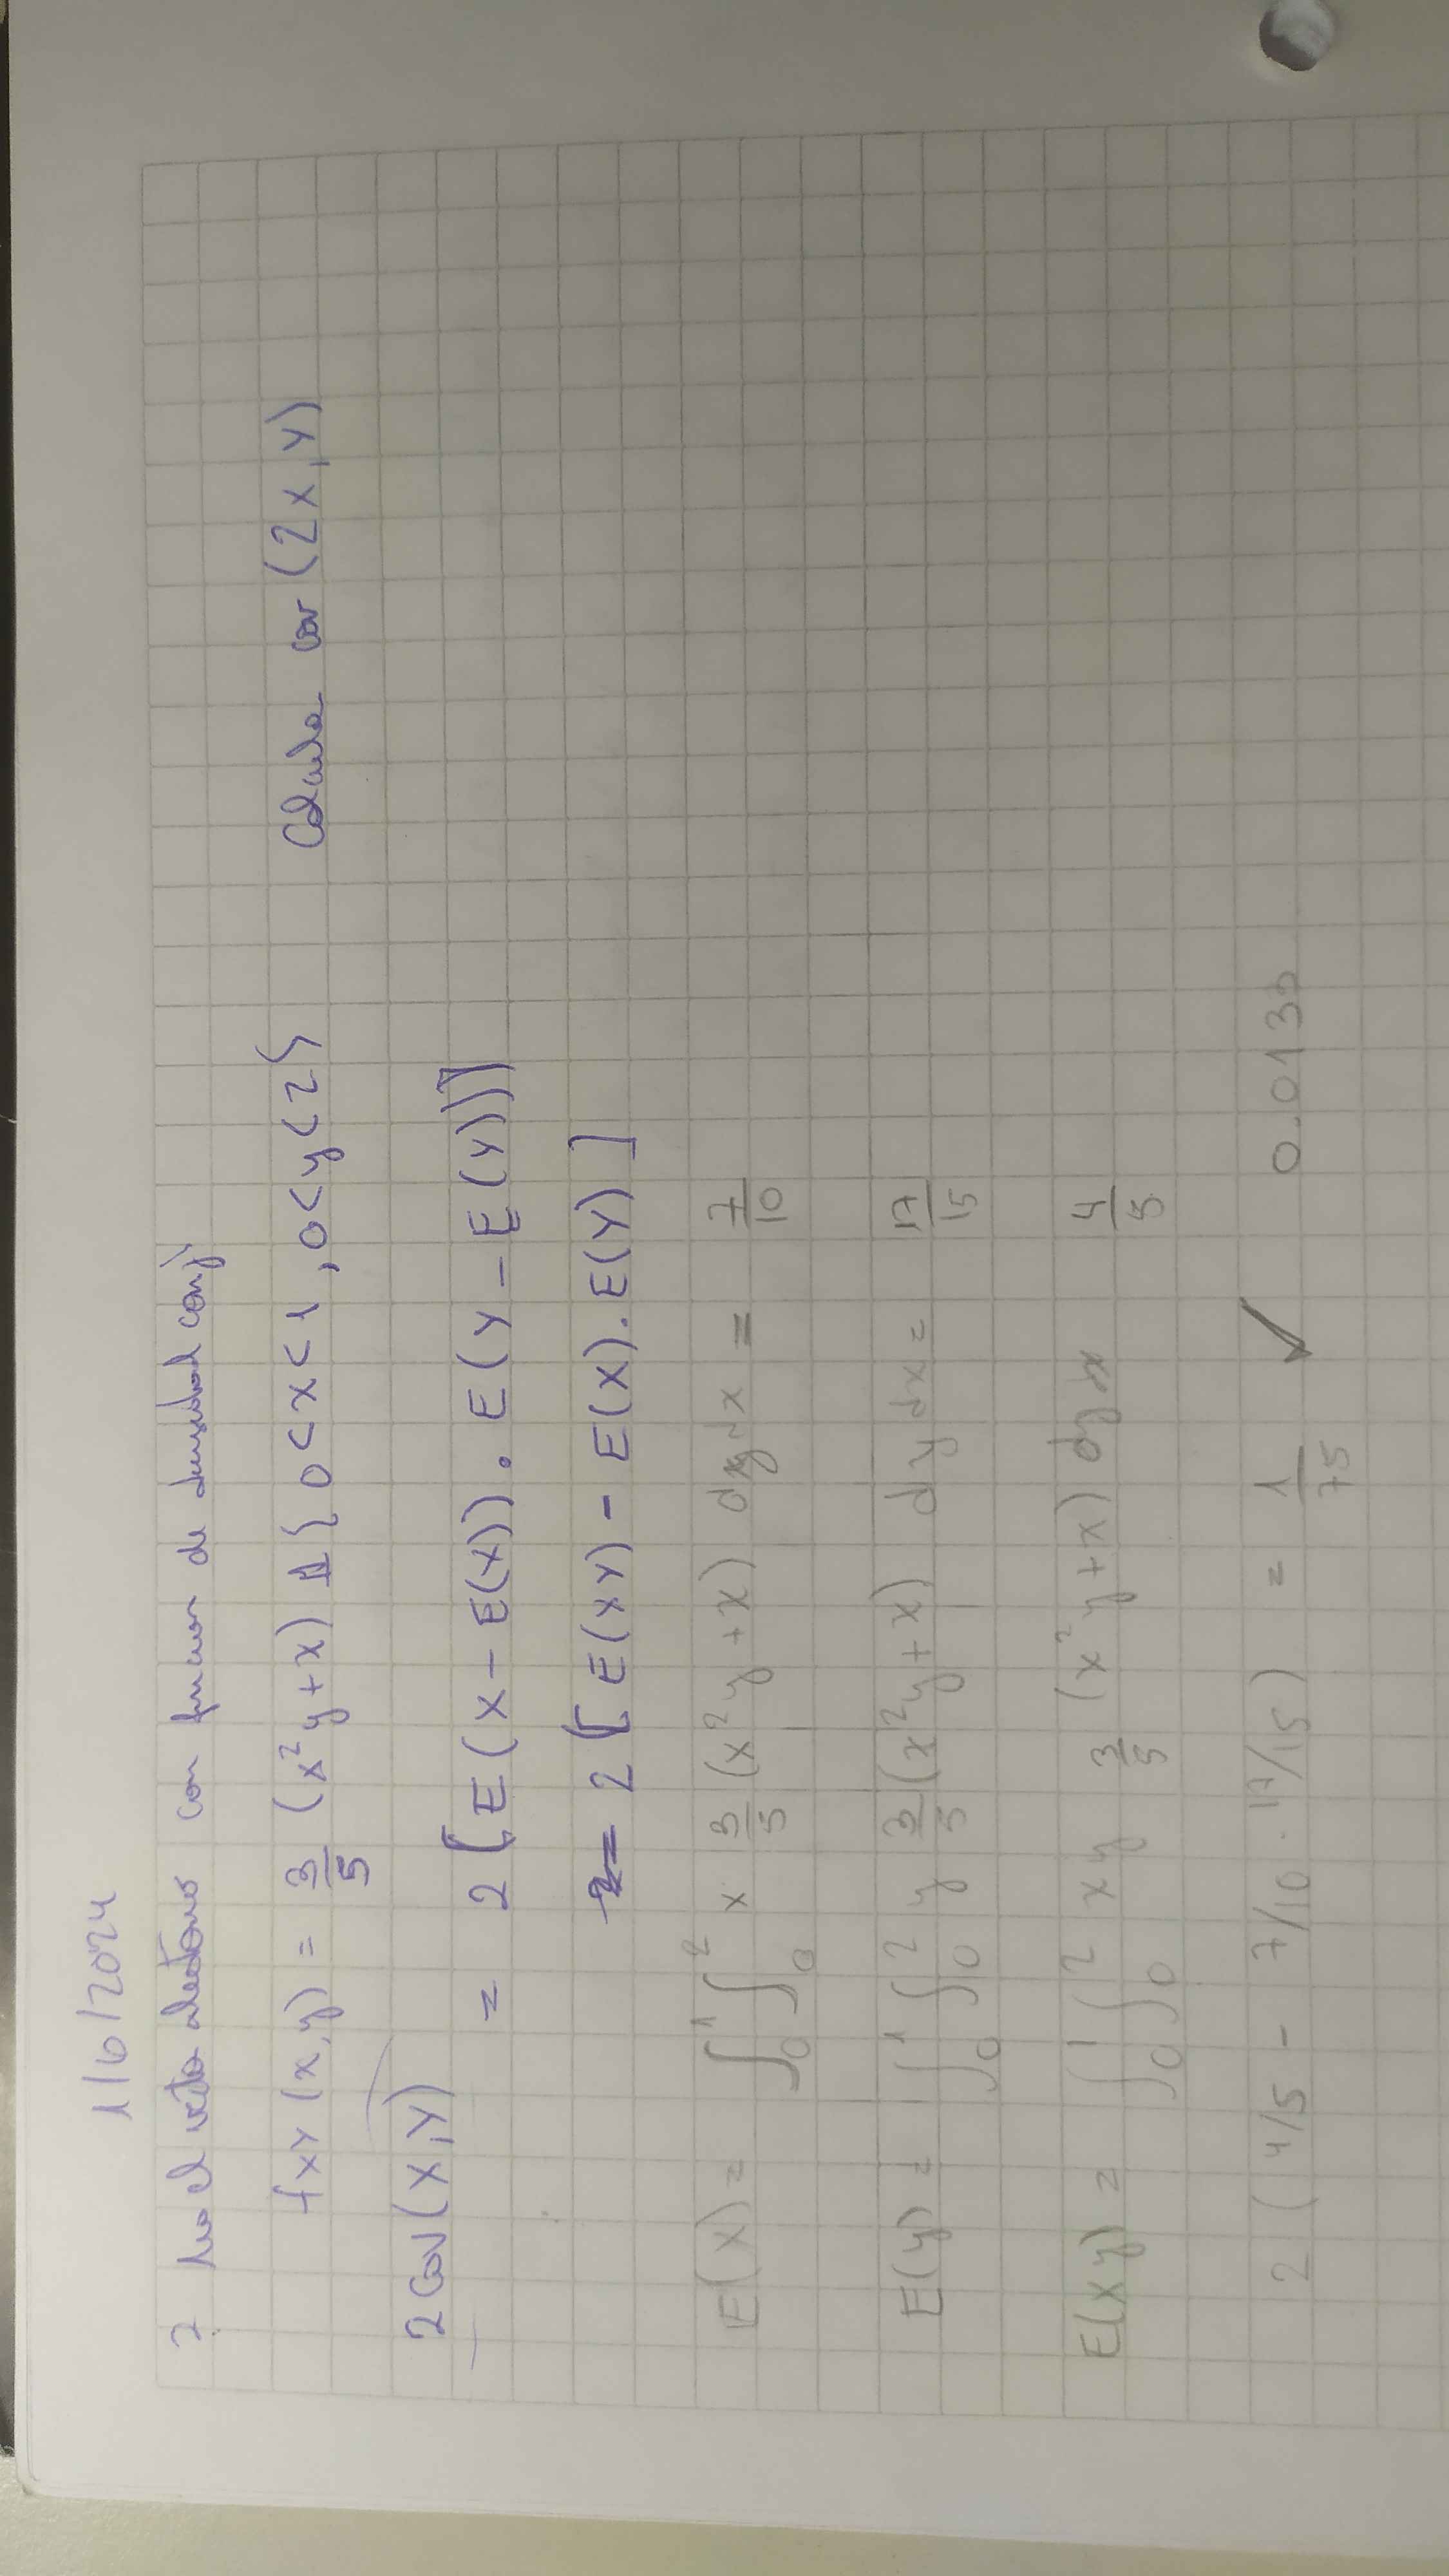 1/6/2024
7 Sea el vector aleatorio con funcion de densidad conj
fXY (x,y) = 3/5 (x²y+x) 1{0<x<1, 0<y<2} Calcular cov (2X,Y)
2 Cov(X,Y)
= 2 [E(X-E(X)) . E(Y-E(Y))]
= 2 [E(XY) - E(X). E(Y)]
E(X) = ∫₀¹∫₀² x 3/5 (x²y+x) dy dx = 7/10
E(y) = ∫₀¹∫₀² y 3/5 (x²y+x) dy dx = 17/15
E(xy) = ∫₀¹∫₀² xy 3/5 (x²y+x) dy dx 4/5
2 (4/5 - 7/10 . 17/15) = 1/75 ✓ 0.0133